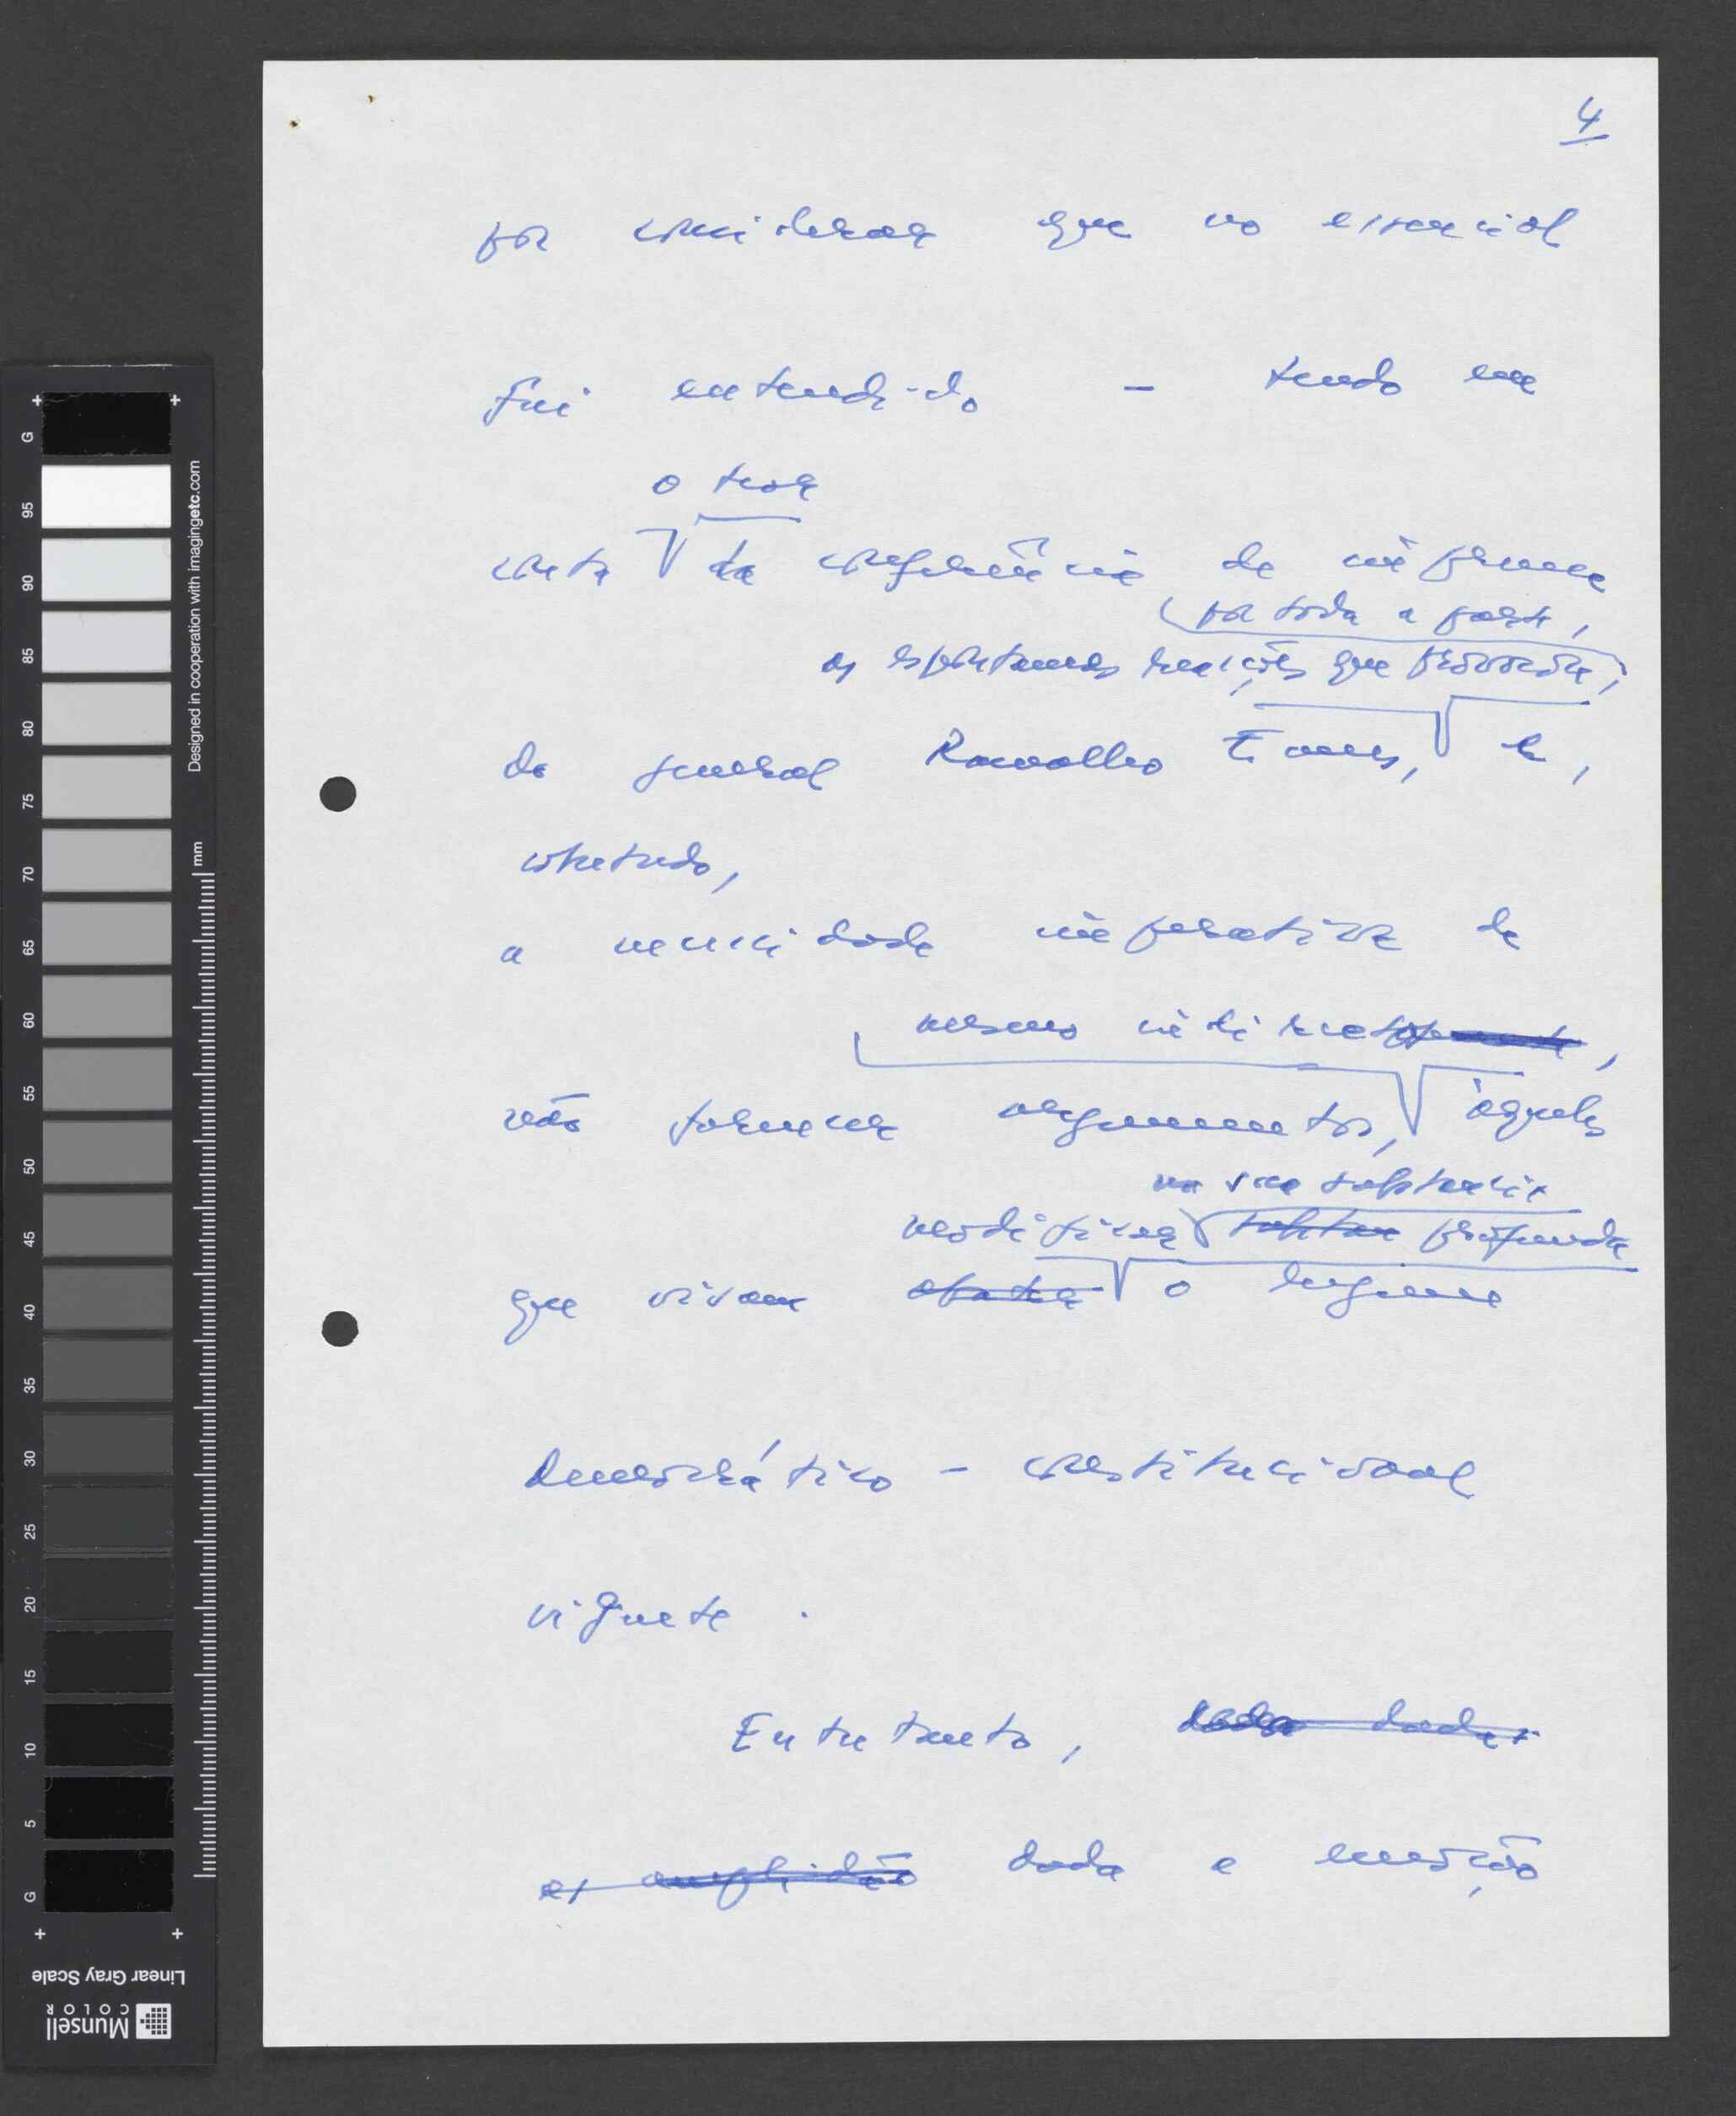 4
por considerar que no essencial
fui entendido – tendo em
o teor
conta da conferência de imprensa
por toda a parte,
as espontaneas reacções que provocou,
do general Ramalho Eanes, e,
sobretudo,
a necessidade imperativa de
mesmo indirectamente,
não fornecer argumentos, àqueles
na sua substancia
modificar profunda
que visam o regime
democrático-constitucional
vigente.
Entretanto, dada
as dada a emoção
G
95
90
85
80
75
70
65
60
55
50
45
40
35
30
25
20
15
10
5
G
mm
Designed in cooperation with imagingetc.com
Linear Gray Scale
Munsell
COLOR